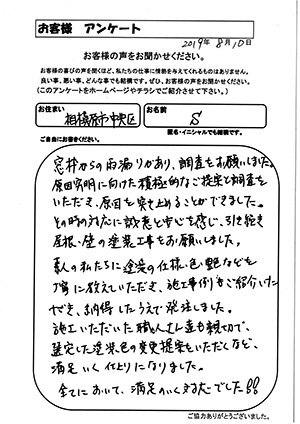 お客様 アンケート
2019年 8月10日
お客様の声をお聞かせください。
お客様の喜びの声を聞くほど、私たちの仕事に情熱を与えてくれるものはありません。
良い事、悪い事、どんな事でも結構です。ぜひ、お客様の声をお聞かせください。
(このアンケートをホームページやチラシでご紹介させて下さい。)
お住まい
相模原市中央区
お名前
S
匿名・イニシャルでも結構です。
ご自由にお書きください。
窓枠からの雨漏りがあり、調査をお願いしました。
原因究明に向けた積極的なご提案と調査を
いただき、原因を突き止めることができました。
その時の対応に誠意と安心を感じ、引き続き
屋根・壁の塗装工事をお願いしました。
素人の私たちに塗装の仕様・色・艶などを
丁寧に教えていただき、施工事例もご紹介いた
だき、納得したうえで発注しました。
施工いただいた職人さん達も親切で、
選定した塗装色の変更提案をいただくなど、
満足いく仕上りになりました。
全てにおいて、満足のいく対応でした!!
ご協力ありがとうございました。